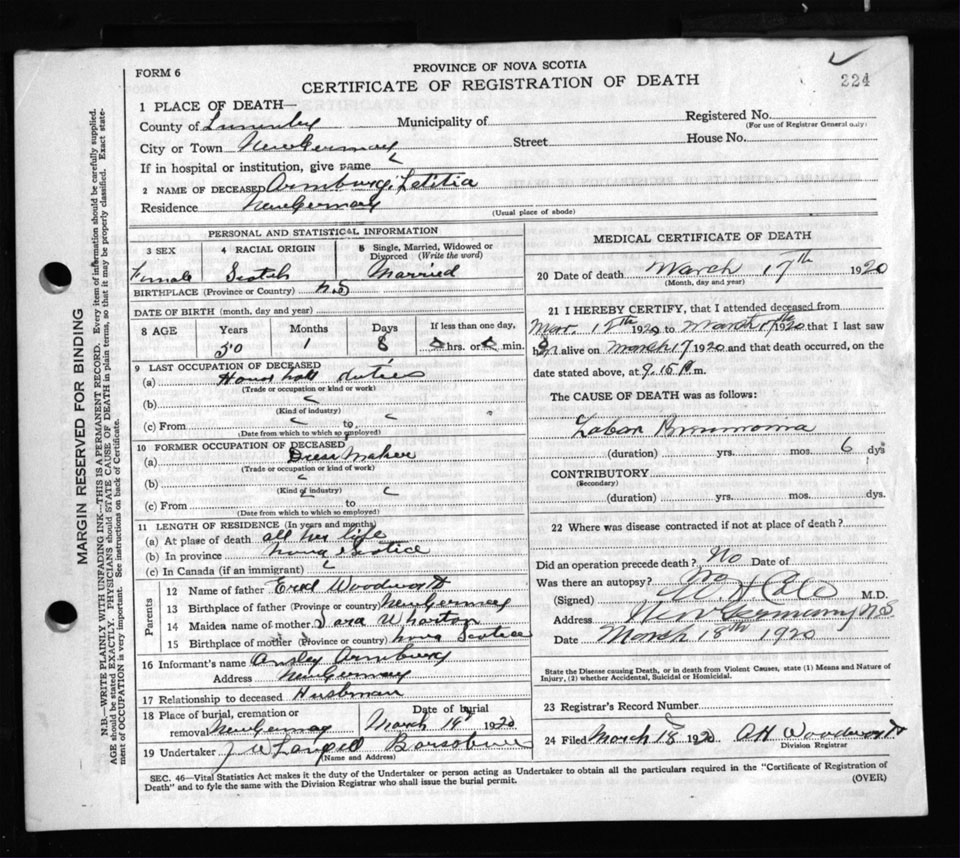 FORM 6
PROVINCE OF NOVA SCOTIA
CERTIFICATE OF REGISTRATION OF DEATH
224
1 PLACE OF DEATH—
Registered No.
(For use of Registrar General only)
County of Municipality of
City or Town New Germany Street House No.
If in hospital or institution, give name
2 NAME OF DECEASED Letitia
Residence New Germany
(Usual place of abode)
PERSONAL AND STATISTICAL INFORMATION
3 SEX 4 RACIAL ORIGIN 5 Single, Married, Widowed or Divorced (Write the word)
Female Scotch Married
BIRTHPLACE (Province or Country) N.S
DATE OF BIRTH (month, day and year)
8 AGE Years Months Days If less than one day,
30 1 8 hrs. or min.
9 LAST OCCUPATION OF DECEASED
(a) duties
(Trade or occupation or kind or work)
(b)
(Kind of industry)
(c) From to
(Date from which to which so employed)
10 FORMER OCCUPATION OF DECEASED
(a) Dress Maker
(Trade or occupation or kind of work)
(b)
(Kind of industry)
(c) From to
(Date from which to which so employed)
11 LENGTH OF RESIDENCE (In years and months)
(a) At place of death all her life
(b) In province
(c) In Canada (if an immigrant)
Parents
12 Name of father Woodworth
13 Birthplace of father (Province or country) New Germany
14 Maiden name of mother Sara Wharton
15 Birthplace of mother (Province or country) Nova
16 Informant's name
Address New Germany
17 Relationship to deceased
18 Place of burial, cremation or removal New Germany
Date of burial
March 19 1920
19 Undertaker J W
(Name and Address)
MEDICAL CERTIFICATE OF DEATH
20 Date of death March 17th 1920
(Month, day and year)
21 I HEREBY CERTIFY, that I attended deceased from
Mar. 12th 1920 to March 17th 1920 that I last saw
h alive on March 17 1920 and that death occurred, on the
date stated above, at 9.15 P.m.
The CAUSE OF DEATH was as follows:
(duration) yrs. mos. 6 dys
CONTRIBUTORY
(Secondary)
(duration) yrs. mos. dys.
22 Where was disease contracted if not at place of death?
Did an operation precede death? no Date of
Was there an autopsy? no
(Signed) M.D.
Address New Germany NS
Date March 18th 1920
State the Disease causing Death, or in death from Violent Causes, state (1) Means and Nature of
Injury, (2) whether Accidental, Suicidal or Homicidal.
23 Registrar's Record Number
24 Filed March 18 1920 AH Woodworth
Division Registrar
SEC. 46—Vital Statistics Act makes it the duty of the Undertaker or person acting as Undertaker to obtain all the particulars required in the "Certificate of Registration of
Death" and to fyle the same with the Division Registrar who shall issue the burial permit.
(OVER)
MARGIN RESERVED FOR BINDING
N.B.—WRITE PLAINLY WITH UNFADING INK—THIS IS A PERMANENT RECORD. Every item of information should be carefully supplied.
AGE should be stated EXACTLY. PHYSICIANS should STATE CAUSE OF DEATH in plain terms, so that it may be properly classified. Exact state-
ment of OCCUPATION is very important. See instructions on back of Certificate.